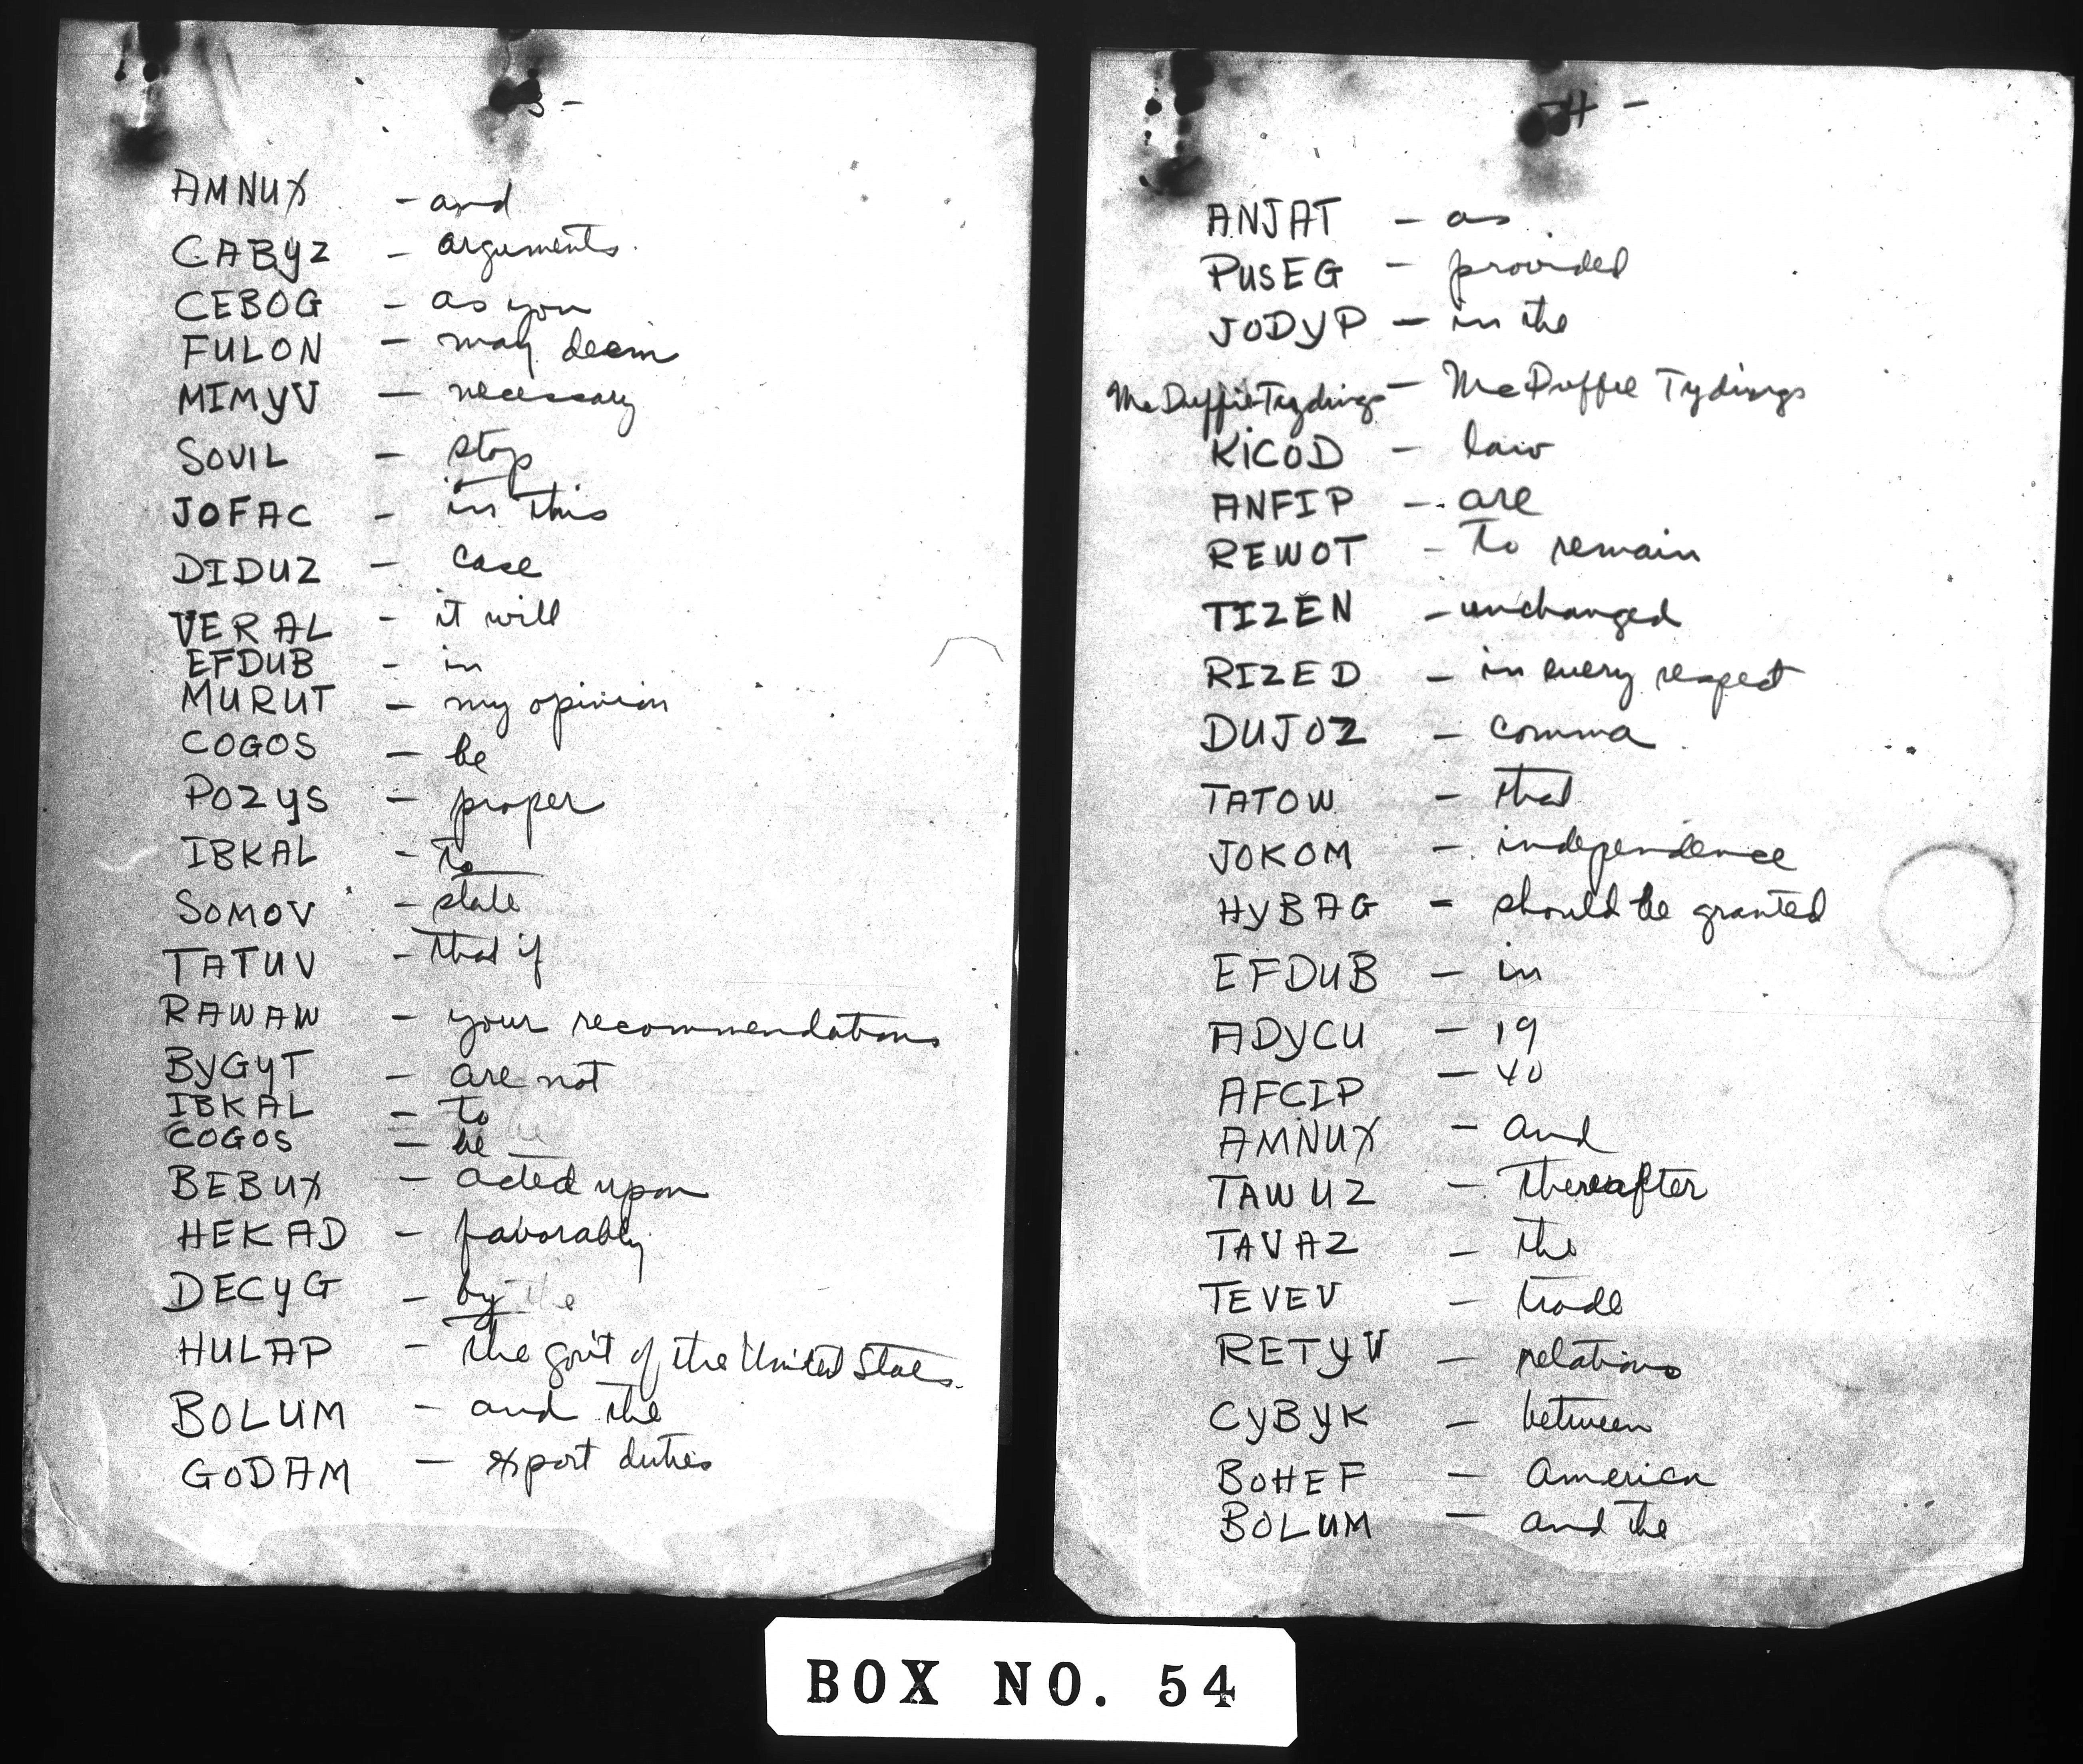 3 -
AMNUX - and
CABYZ - arguments.
CEBOG - as you
FULON - may deem
MIMYV - necessary
SOVIL - stop
JOFAC - in this
DIDUZ - case
VERAL - it will
EFDUB - in
MURUT - my opinion
COGOS - be
POZYS - proper
IBKAL - to
SOMOV - state
TATUV - that if
RAWAW - your recommendations
BYGYT - are not
IBKAL - to
COGOS - be
BEBUX - acted upon
HEKAD - favorably
DECYG - by the
HULAP - the gov't of the United States.
BOLUM - and the
GODAM - export duties
-4 -
ANJAT - as
PUSEG - provided
JODYP - in the
McDuffie-Tydings - McDuffie Tydings
KICOD - law
ANFIP - are
REWOT - to remain
TIZEN - unchanged
RIZED - in every respect
DUJOZ - comma
TATOW - that
JOKOM - independence
HYBAG - should be granted
EFDUB - in
ADYCU - 19
AFCIP - 40
AMNUX - and
TAWUZ - thereafter
TAVAZ - the
TEVEV - trade
RETYV - relations
CYBYK - between
BOHEF - America
BOLUM - and the
BOX NO. 54